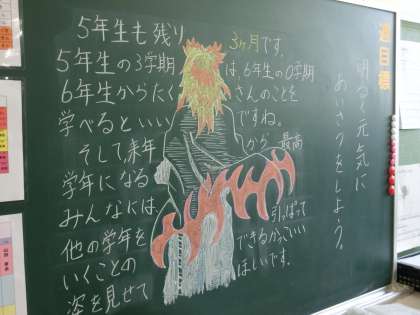 5年生も残り 3ヶ月です。
5年生の3学期は、6年生の0学期
6年生からたくさんのことを
学べるといいですね。
そして、来年から、最高
学年になる
みんなには、
他の学年を引っぱって
いくことのできるかっていい
姿を見せてほしいです。
週目標
明るく元気に
あいさつをしよう。